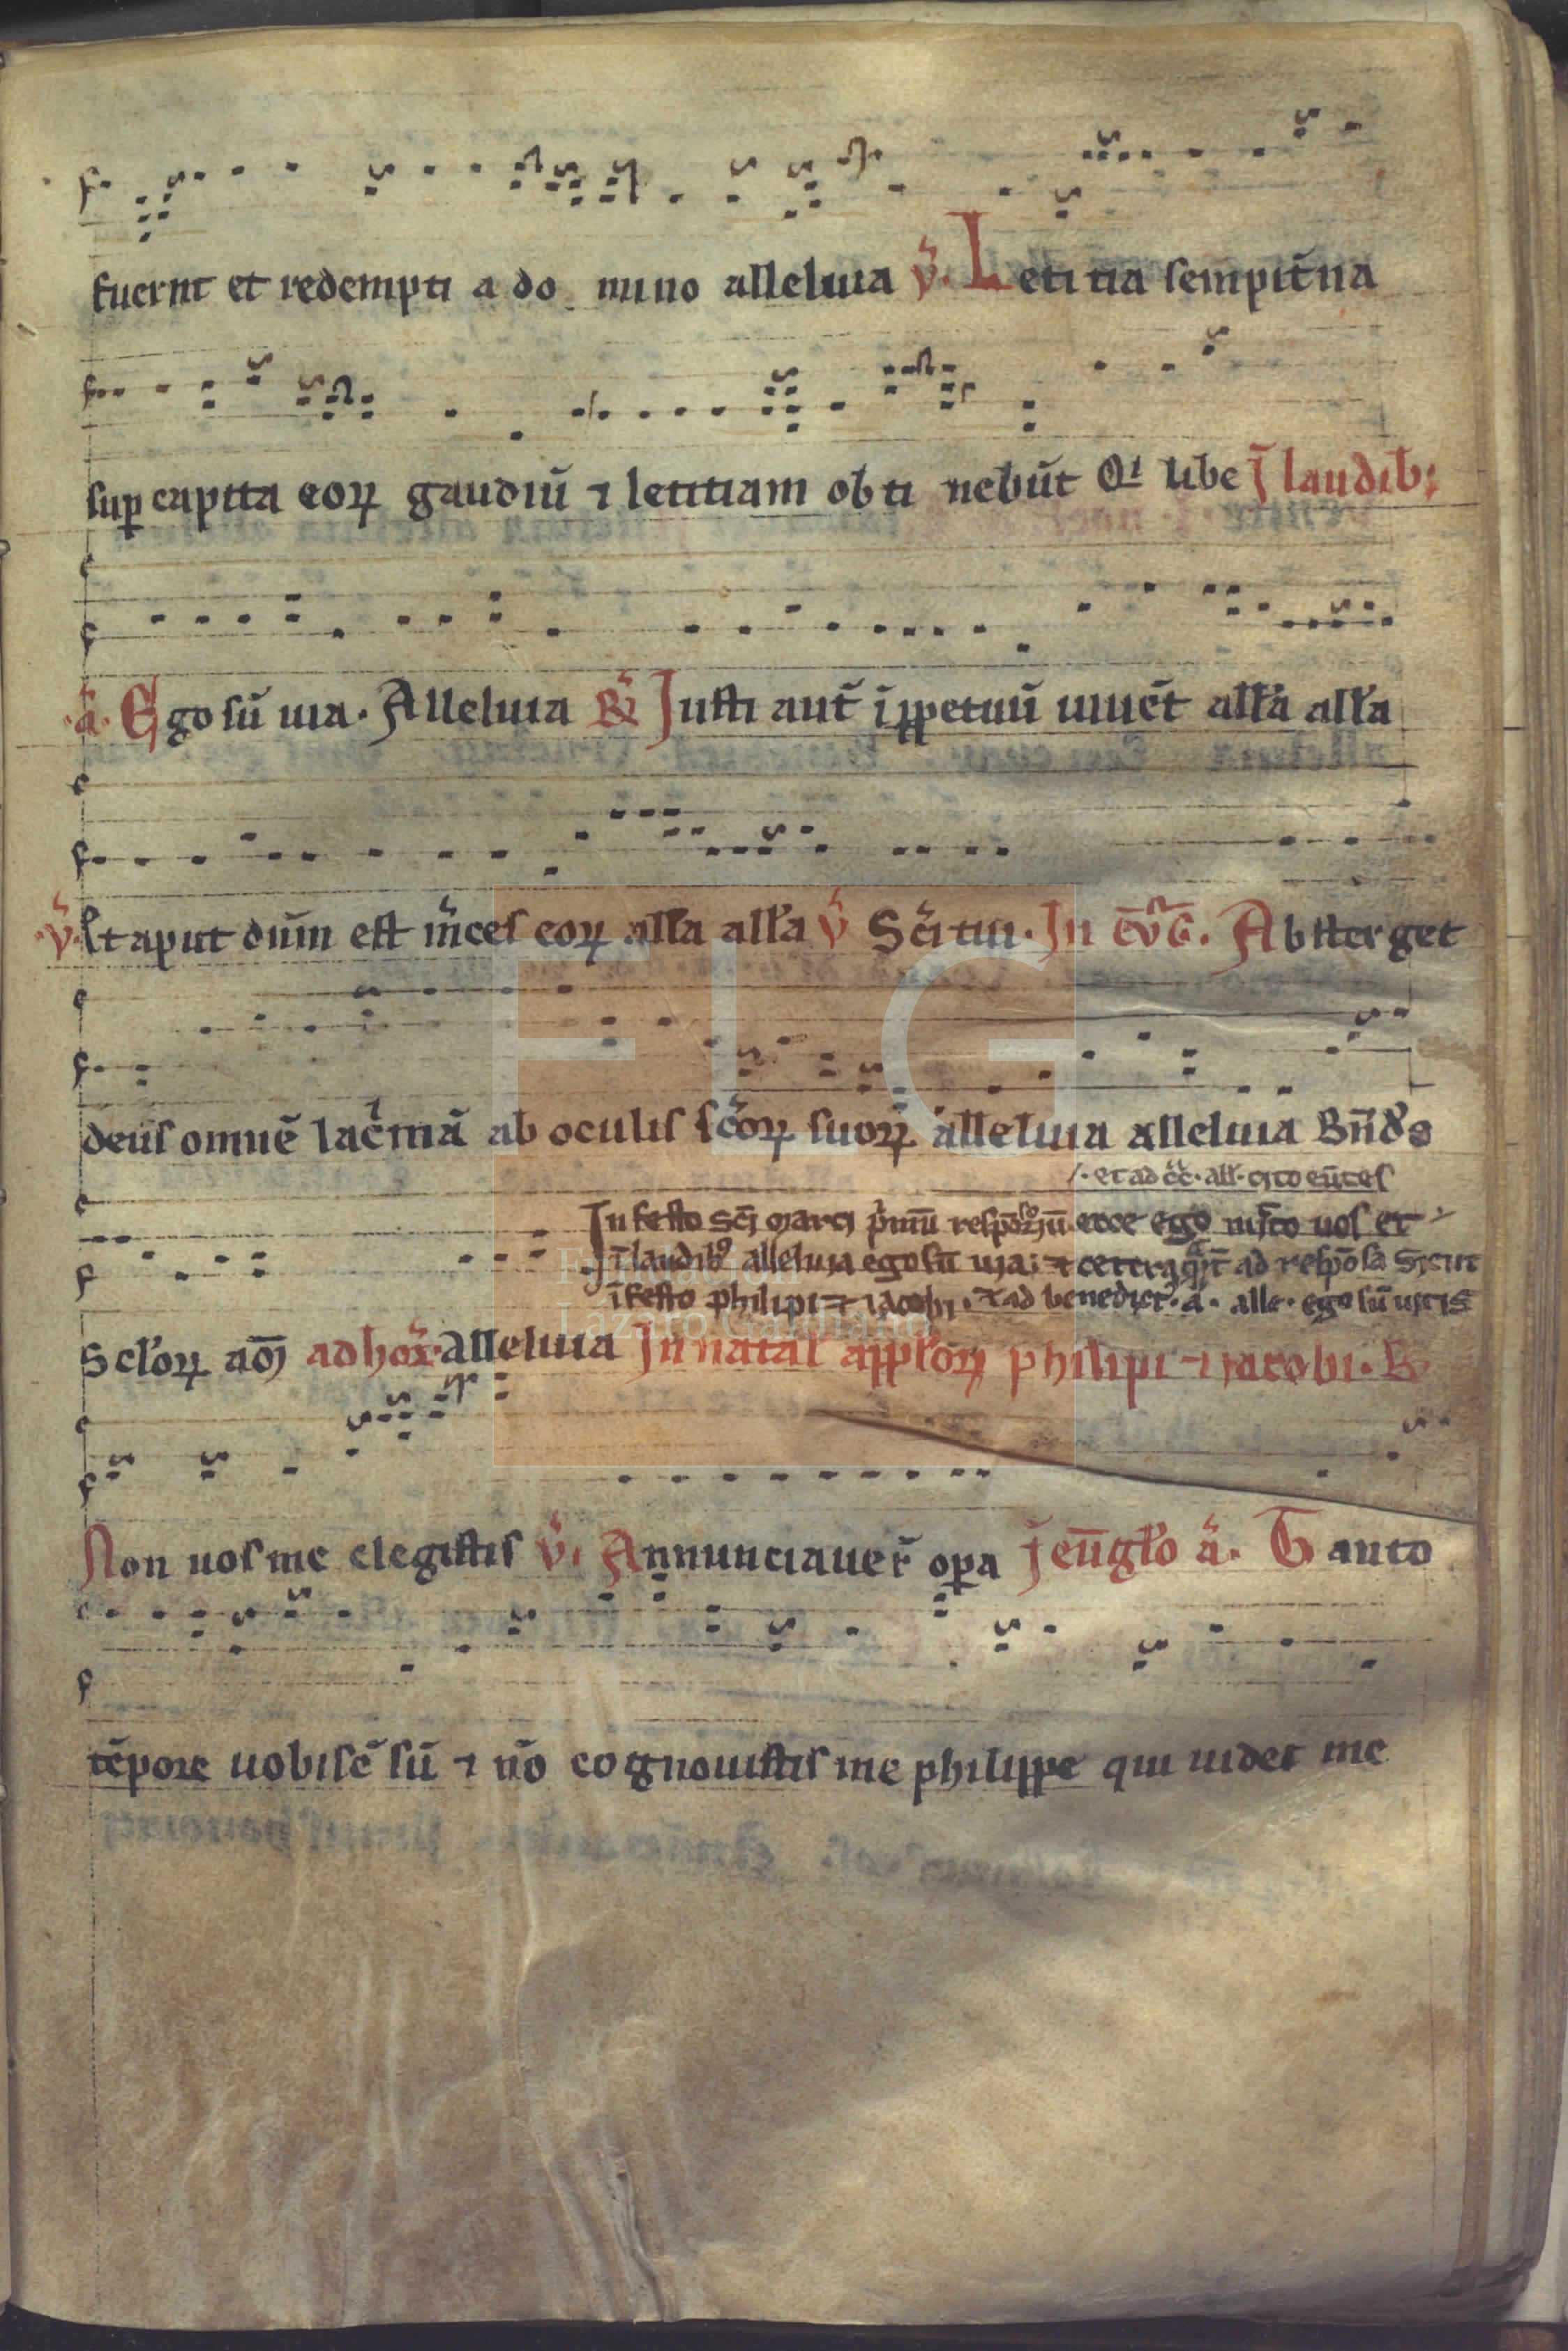 fuernt et redempti a do mino alleluia v̄. Letitia sempit̄na
sup capita eoꝝ gaudiū ⁊ letitiam obti nebūt Qi libe ī laudib;
ā. Ego sū uia. Alleluia ℟ Justi aut̄ ī ppetuū uiuēt all̄a all̄a
v̄. Et aput dūm est m̄ces eoꝝ all̄a all̄a v̄ Sc̄i tui. In ēvḡ. Absterget
deus omnē lac̄mā ab oculis sc̄oꝝ suoꝝ alleluia alleluia Bn̄ds
et ad cc̄. all. cito eūtes
In festo Sc̄i marci p̄mū respōsoriū. ecce ego mit̄to uos et
ī laudibꝰ alleluia ego sū uia; ⁊ cetera ad respōsa Sicut
ī festo philipi ⁊ iacobi. ⁊ ad benedict̄. ā. alle. ego sū uitis
Sc̄loꝝ am̄ ad hor̄ Alleluia In natal apploꝝ philipi ⁊ iacobi. ℟
Non uos me elegistis v̄. Annunciauer̄ opa ī eūglo ā. Tanto
tēpore uobisc̄ sū ⁊ nō cognouistis me philippe qui uidet me
FLG
Fundación
Lázaro Galdiano